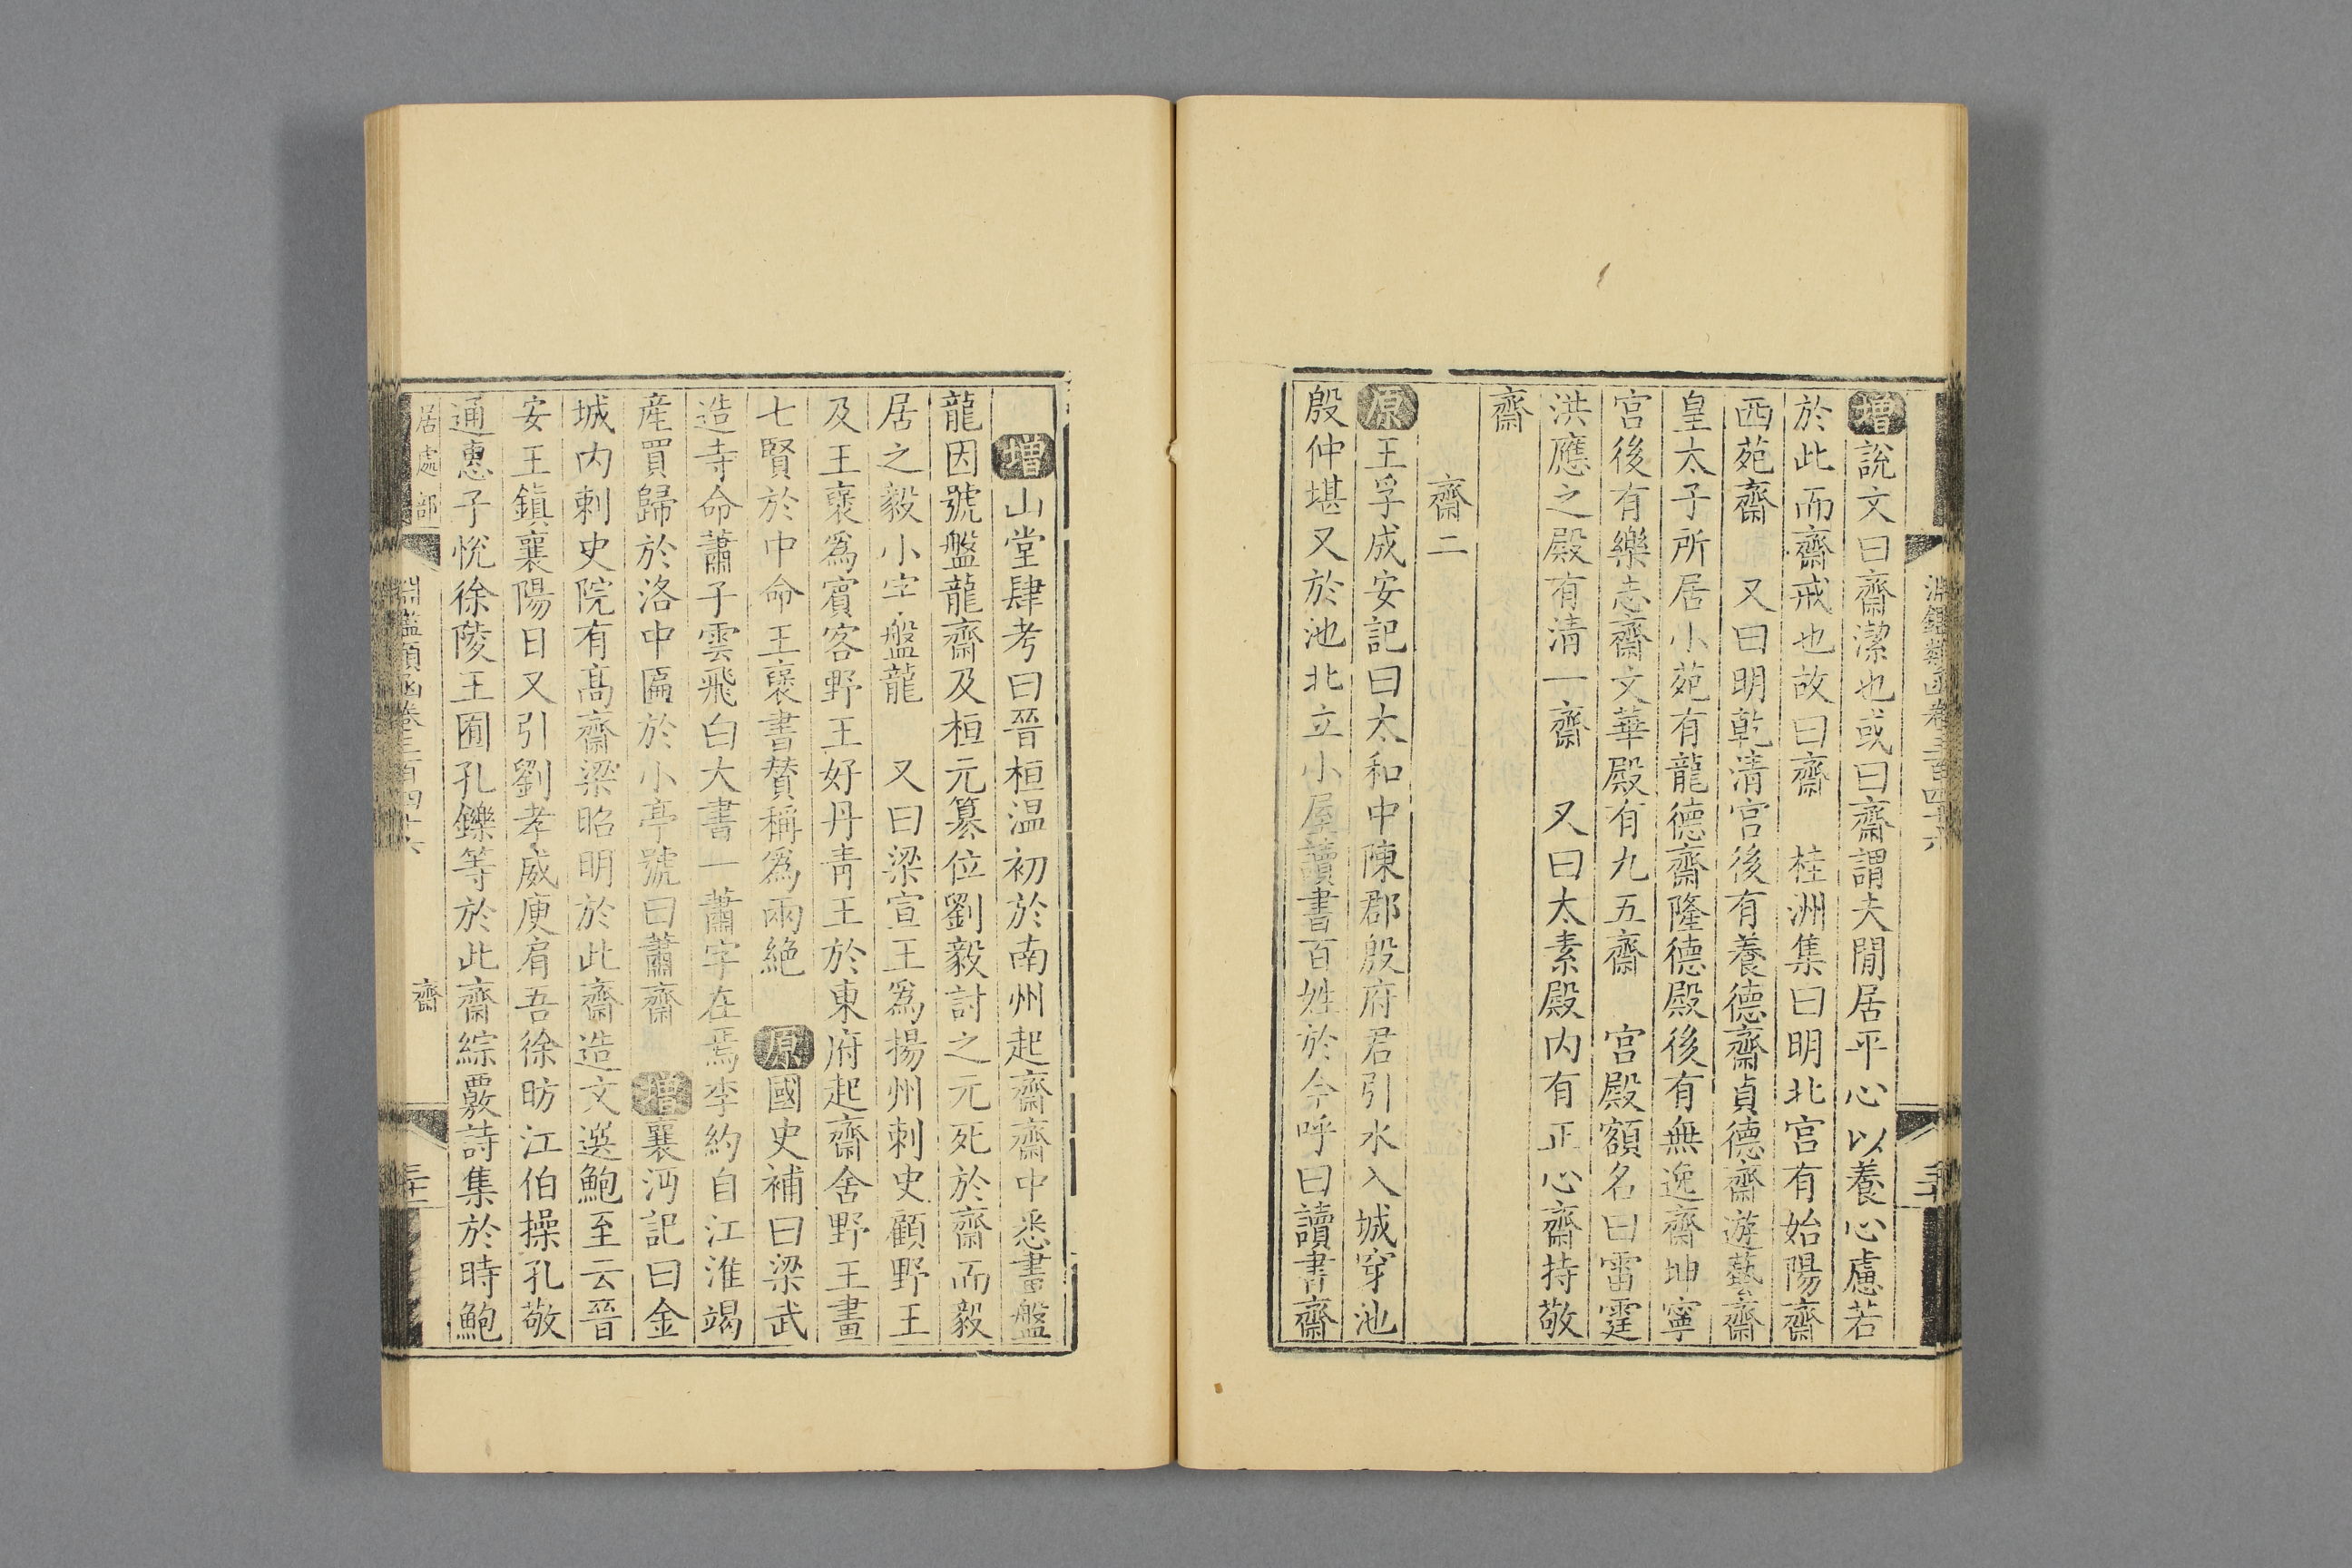 增說文曰齋潔也或曰齋謂夫閒居平心以養心慮若
於此而齋戒也故曰齋　桂洲集曰明北宫有始陽齋
西苑齋　又曰明乾淸宫後有養德齋貞德齋遊藝齋
皇太子所居小苑有龍德齋隆德殿後有無逸齋坤寧
宫後有樂志齋文華殿有九五齋　宫殿額名曰雷霆
洪應之殿有淸一齋　又曰太素殿内有正心齋持敬
齋
齋二
原王孚成安記曰太和中陳郡殷府君引水入城穿池
殷仲堪又於池北立小屋讀書百姓於今呼曰讀書齋
淵鑑類函卷三百四十六
增山堂肆考曰晉桓温初於南州起齋齋中悉畫盤
龍因號盤龍齋及桓元篡位劉毅討之元死於齋而毅
居之毅小字盤龍　又曰梁宣王爲揚州刺史顧野王
及王褒爲賓客野王好丹靑王於東府起齋舍野王畫
七賢於中命王褒書贊稱爲兩絶　原國史補曰梁武
造寺命蕭子雲飛白大書一蕭字在焉李約自江淮竭
産買歸於洛中匾於小亭號曰蕭齋　增襄沔記曰金
城内刺史院有髙齋梁昭明於此齋造文選鮑至云晉
安王鎭襄陽日又引劉孝威庾肩吾徐昉江伯操孔敬
通惠子悅徐陵王囿孔鑠等於此齋綜覈詩集於時鮑
居處部
淵鑑類函卷三百四十六
齋